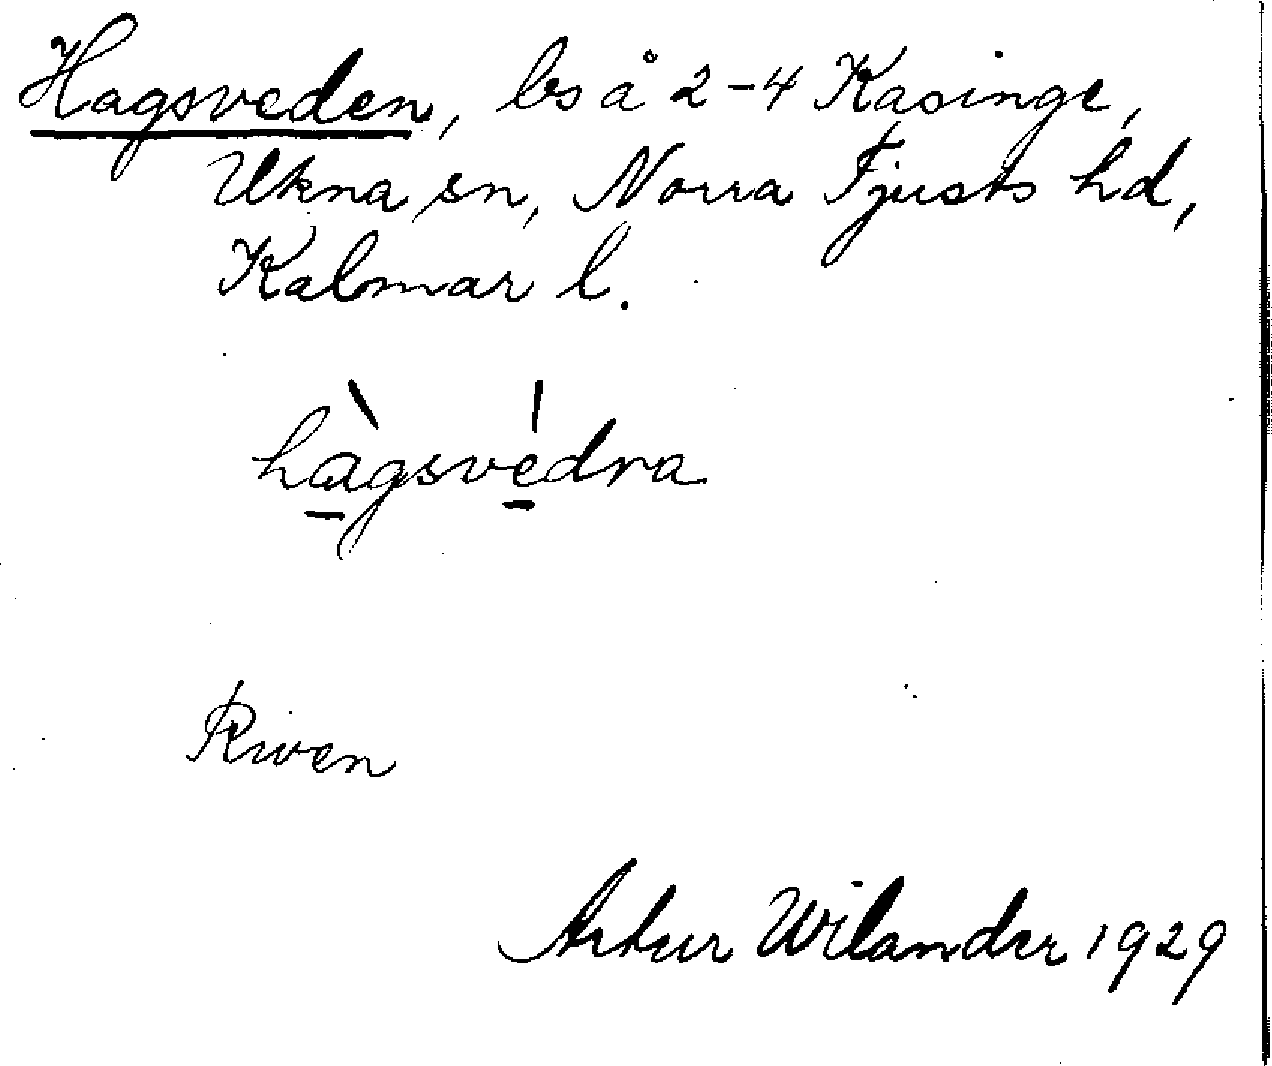 Hagsveden, bs å 2-4 Kasinge,
Ukna sn, Norra Tjusts hd,
Kalmar l.
hàgsvédra
Riven
Artur Wilander 1929